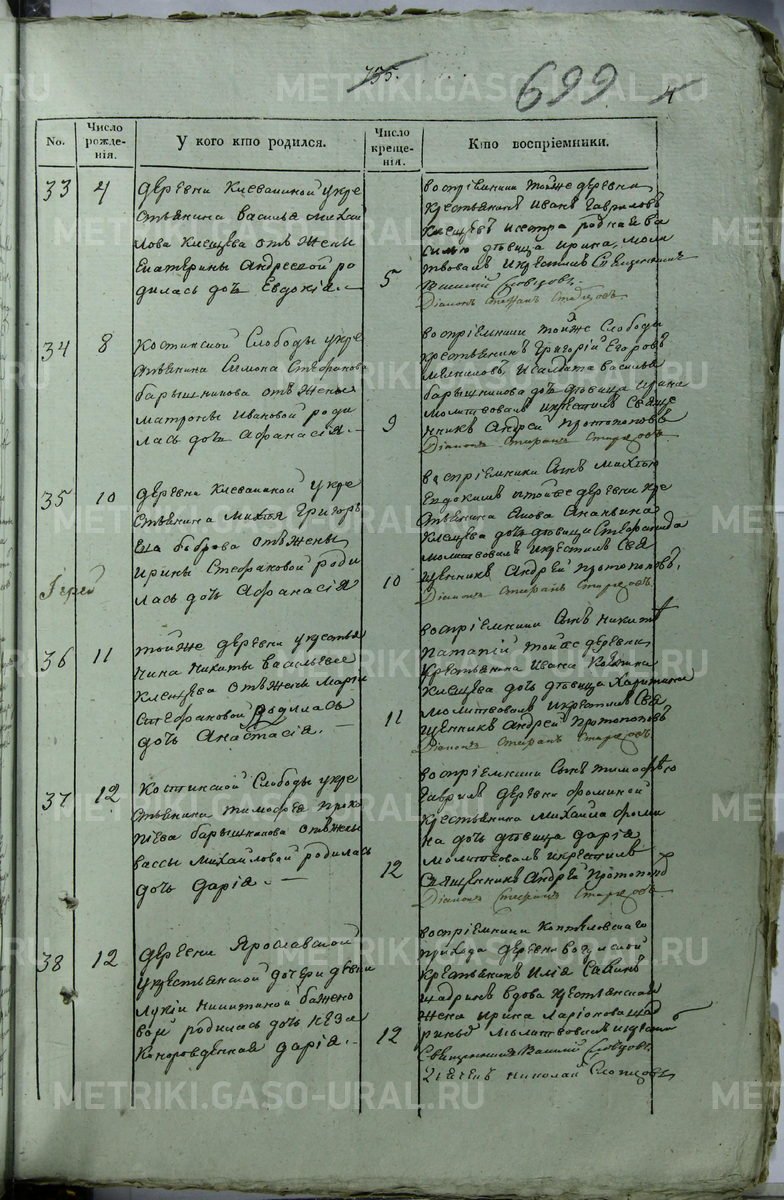 755.
699
4
No.
Число рожде-нія.
У кого кто родился.
Число креще-нія.
Кто воспріемники.
33
4
деревни Клевакиной укре
стьянина василья михай
лова клещева отъ жены
Екатерины Андреевой ро
дилась дочь Евдокія. —
5
воспріемники тойже деревни
крестьянинъ Иванъ Гавриловъ
Клещевъ исестра роднаява
силью дѣвица ирина, моли
твовалъ икрестилъ Священникъ
Василий Словцовъ.
Діаконъ Стефанъ
34
8
Костинской Слободы укре
стьянина Симона Стефанов
барышникова отъ жены
матроны Ивановой роди
лась дочь Афанасія. —
9
воспріемники тойже Слободы
крестьянинъ Григорій Егоровъ
исолдата василья
барышникова дочь дѣвица ирина
молитвовалъ икрестилъ Свяще
нникъ Андрей протопоповъ
Діаконъ Стефанъ
35
10
деревни Клевакиной укре
стьянина Григорь
ева боброва отъ жены
ирины Стефановой роди
лась дочь Афанасія
Іерей
10
воспріемники Сынъ
Евдокимъ итойже деревни кре
стьянина Ананьина
Клещева дочь дѣвица Стефанида
молитвовалъ икрестилъ Свя
щенникъ Андрей протопоповъ.
Діаконъ Стефанъ
36
11
тойже деревни укрестья
нина никиты васильева
Клещева отъ жены Маріи
Стефановой родилась
дочь Анастасія. —
11
воспріемники Сынъ никиты
Ипатій тойже деревни
крестьянина Ивана
Клещева дочь дѣвица Харитинья
молитвовалъ икрестилъ Свя
щенникъ Андрей Протопоповъ
Діаконъ Стефанъ
37
12
Костинской Слободы укре
стьянина тимофея прок
піева барышникова отъ жены
вассы михайловой родилась
дочь дарія. —
12
воспріемники Сынъ тимофѣю
Гаврилъ деревни фоминой
крестьянина михайла фоми
на дочь дѣвица дарія
молитвовалъ икрестилъ
Священникъ Андрей Протопопов
Діаконъ Стефанъ
38
12
деревни Ярославской
укрестьянской дочери девки
лукіи никитиной бажено
вой родилась дочь неза
конорожденная дарія. —
12
воспріемники Коптеловскаго
прихода деревни
крестьянинъ Илія Савинъ
шадринъ вдова крестьянская
жена ирина Ларіонова шад
рины молитвовалъ икрестилъ
Священникъ Василий Словцовъ.
николай Словцовъ
METRIKI.GASO-URAL.RU